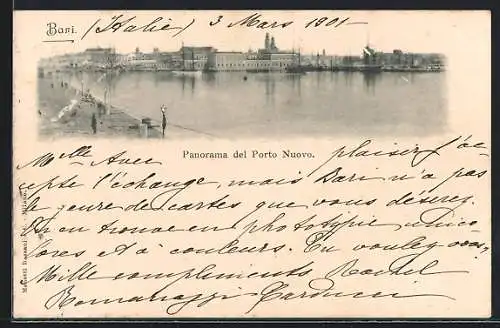 Bari. (Italie) 3 Mars 1901-
Panorama del Porto Nuovo.
Mlle Avec plaisir j'ac-
cepte l'échange, mais Bari n'a pas
le genre de cartes que vous désirez.
On en trouve en phototypie unico-
lores et à couleurs. En voulez-vous?
Mille compliments Rachel
Romanazzi Carducci